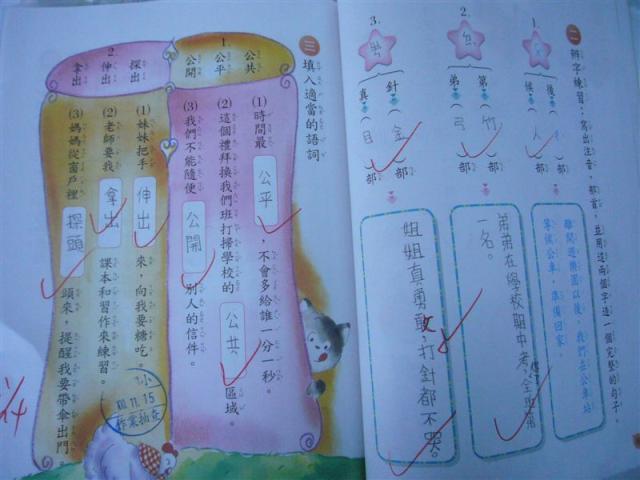 二 辨字練習：寫出注音、部首，並用這兩個字造一個完整的句子。
1.
後（ ）部
候（人）部
離開遊樂園以後，我們在公車站
等候公車，準備回家。
2.
第（竹）部
弟（弓）部
弟弟在學校期中考，
一名。
3.
針（金）部
真（目）部
姐姐真勇敢，打針都不哭。
三 填入適當的語詞
1.
公共
公平
公開
(1) 時間最 公平 ，不會多給誰一分一秒。
(2) 這個禮拜換我們班打掃學校的 公共 區域。
(3) 我們不能隨便 公開 別人的信件。
2.
探出
伸出
拿出
(1) 妹妹把手 伸出 來，向我要糖吃。
(2) 老師要我 拿出 課本和習作來練習。
(3) 媽媽從窗戶裡 探頭 頭來，提醒我要帶傘出門。
11.15
作業抽查